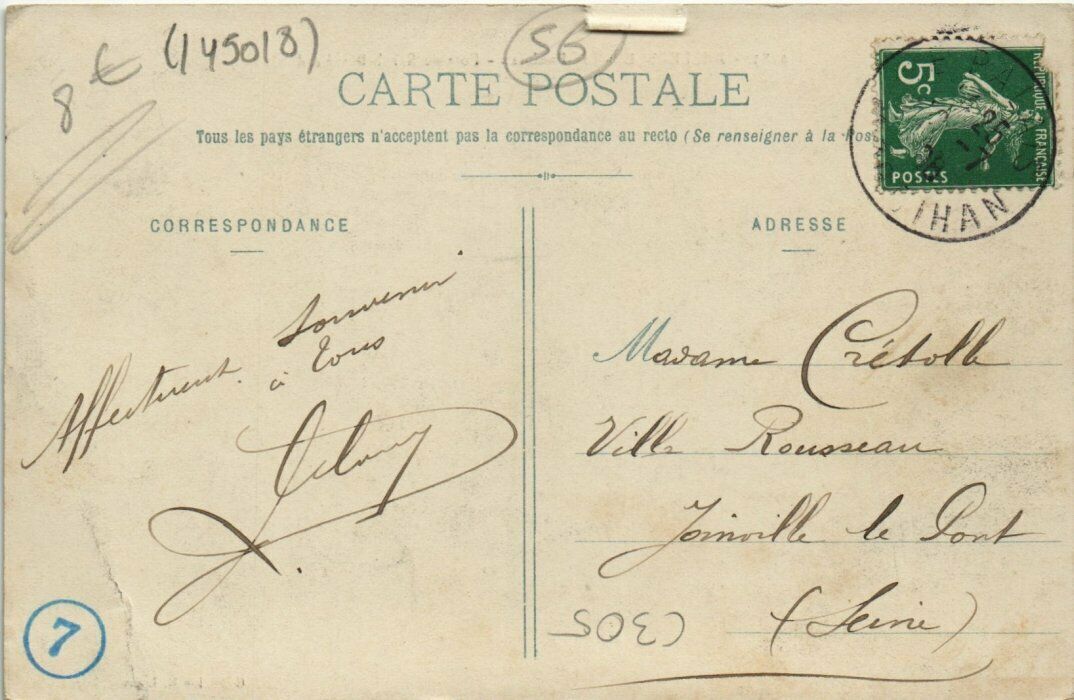 8 €
(145018)
56
CARTE POSTALE
Tous les pays étrangers n'acceptent pas la correspondance au recto (Se renseigner à la Post
5c
RÉPUBLIQUE FRANÇAISE
POSTES
25
IHAN
CORRESPONDANCE
ADRESSE
Affectueux Souvenir
à tous
Madame Crétolle
Villa Rousseau
Joinville le Pont
(Seine)
C305
7